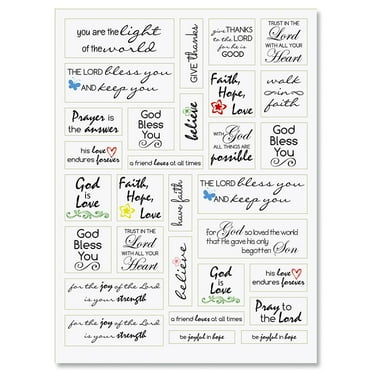 you are the light
of the world
GIVE thanks
give THANKS
TO THE LORD
for he is
GOOD
TRUST IN THE
Lord
WITH ALL YOUR
Heart
THE LORD bless you
AND keep you
believe
Faith,
Hope,
Love
walk
in
faith
Prayer is
the answer
God
Bless
You
WITH
God
ALL THINGS ARE
possible
God
Bless
You
his love
endures forever
a friend loves at all times
God
is
Love
Faith,
Hope,
Love
have faith
THE LORD bless you
AND keep you
God
Bless
You
TRUST IN THE
Lord
WITH ALL YOUR
Heart
believe
for God so loved the world
that He gave his only
begotten Son
God
is
Love
his love
endures forever
for the joy of the Lord
is your strength
Pray to
the Lord
for the joy of the Lord
is your strength
a friend loves at all times
be joyful in hope
be joyful in hope